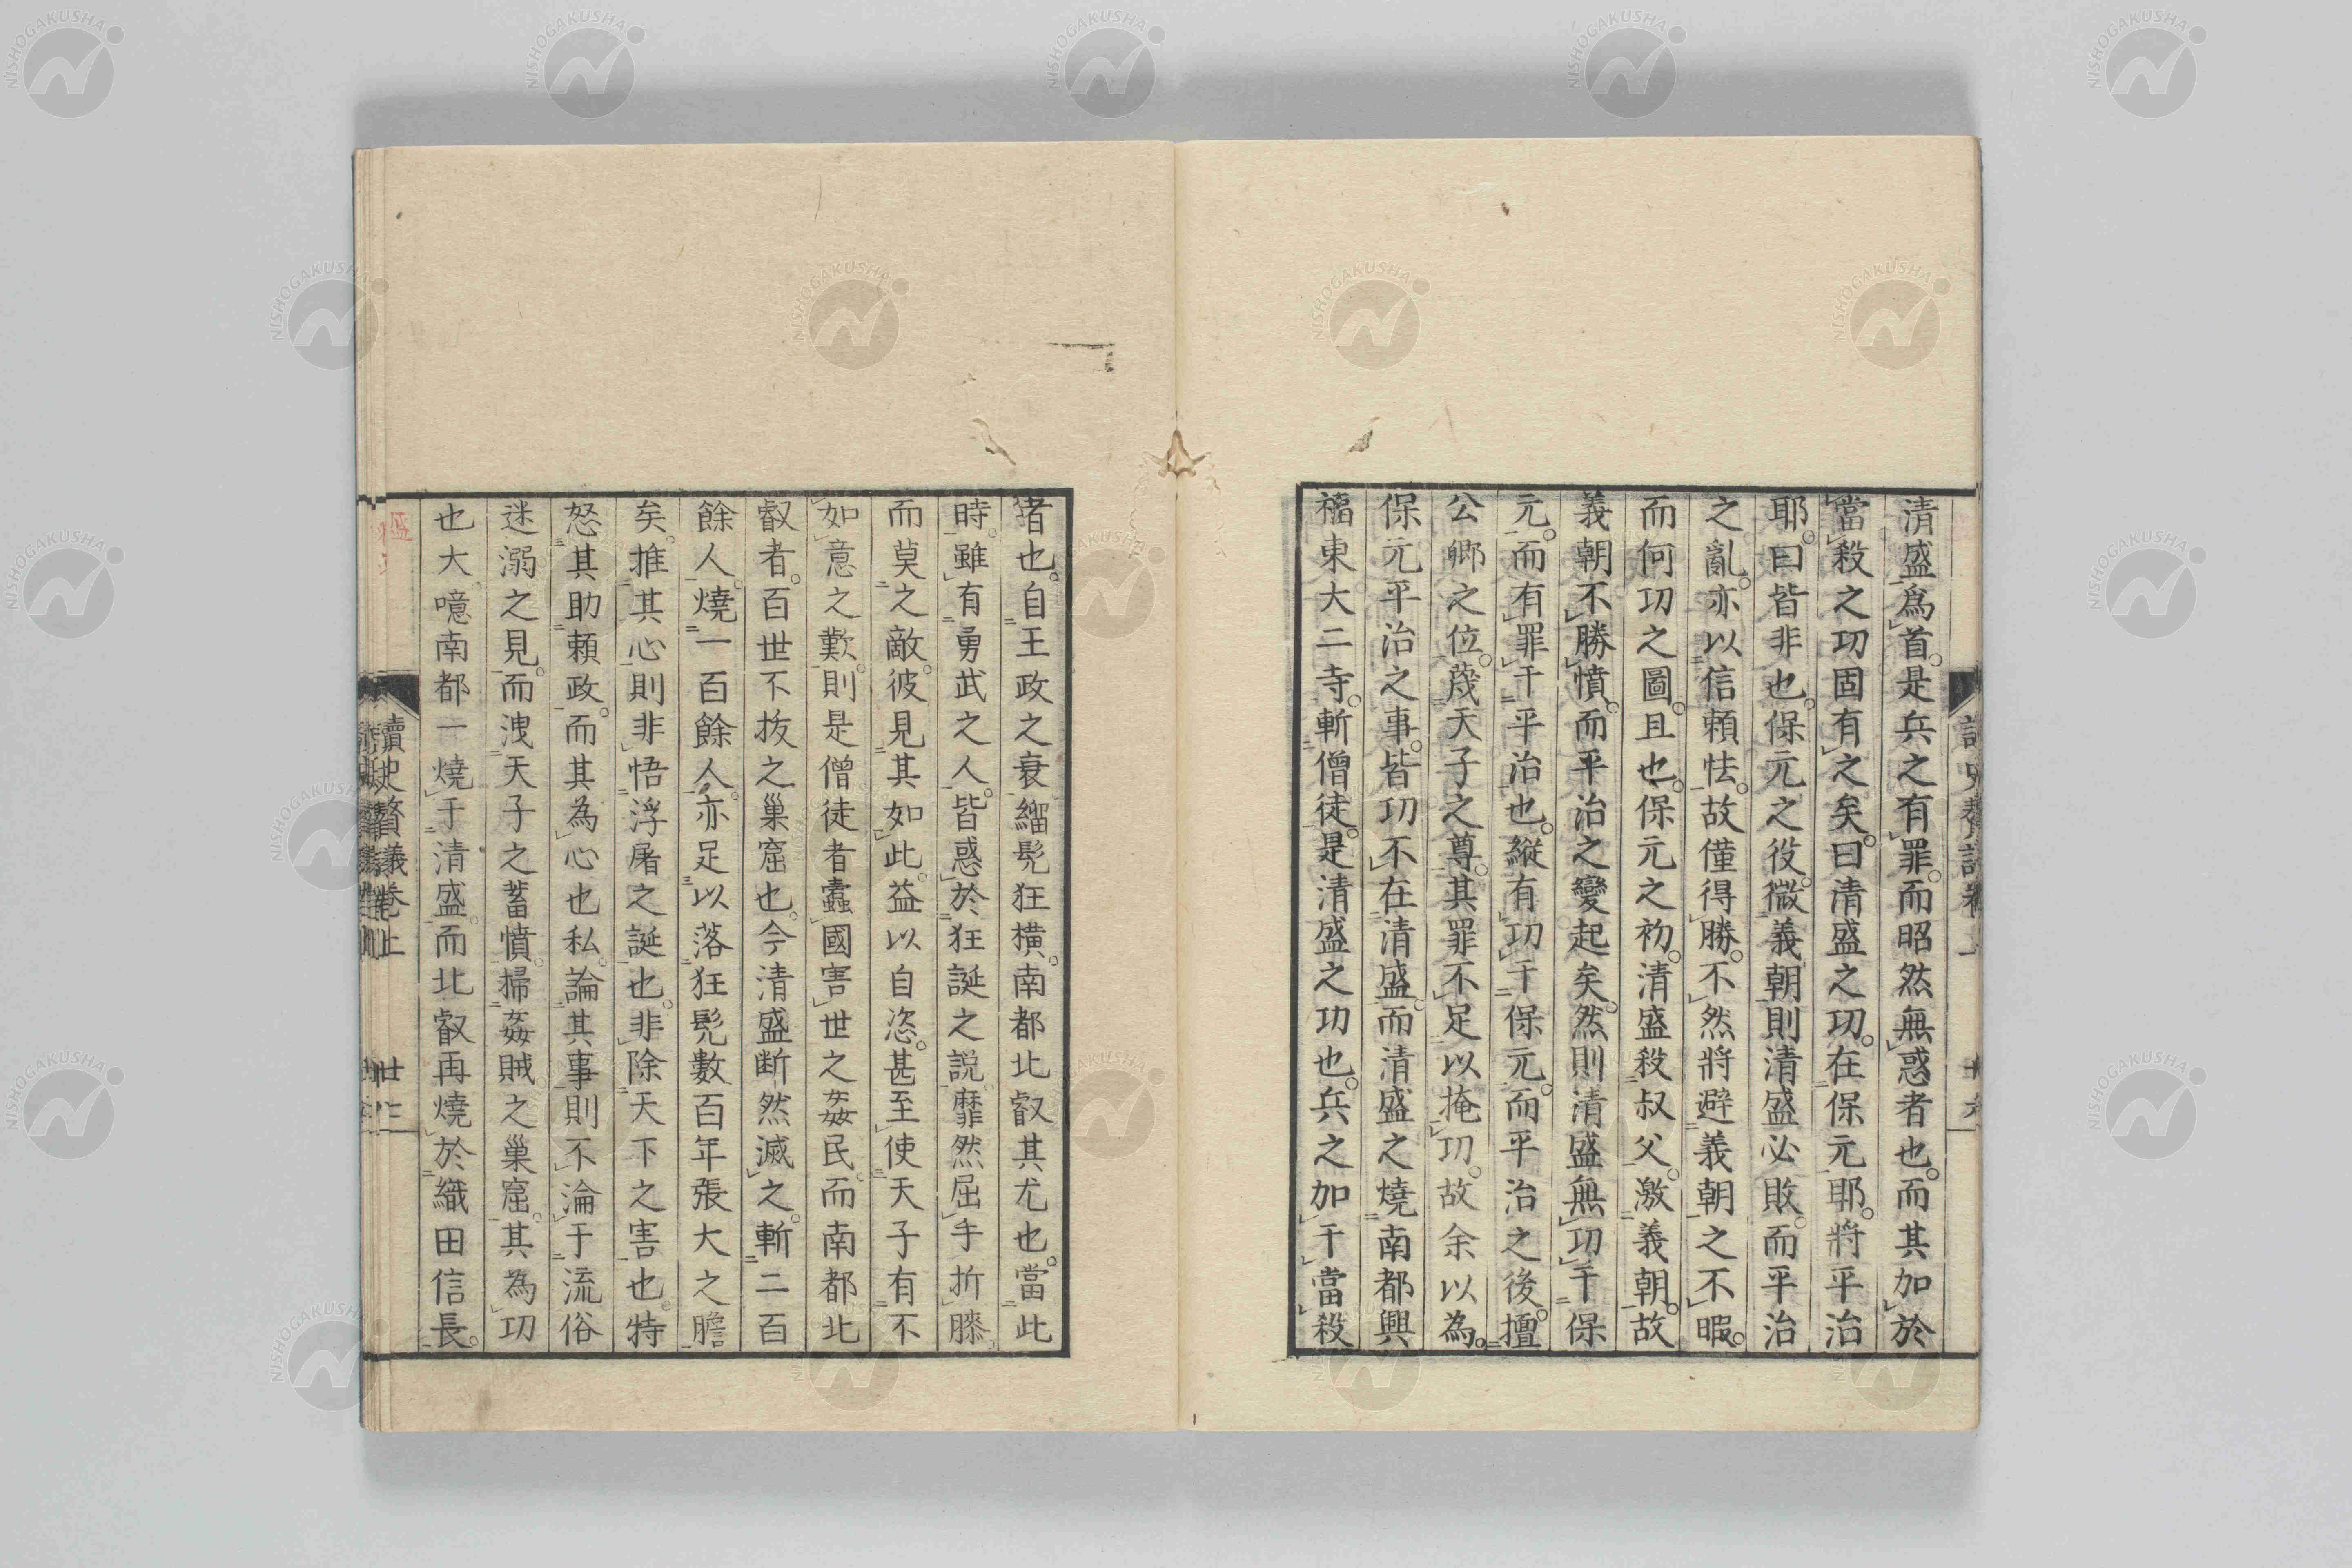 清盛爲首。是兵之有罪。而昭然無惑者也。而其加於
當殺之功固有之矣。曰清盛之功。在保元耶。將平治
耶。曰皆非也。保元之役。微義朝則清盛必敗。而平治
之亂。亦以信頼怯。故僅得勝。不然將避義朝之不暇。
而何功之圖。且也。保元之初。清盛殺叔父。激義朝。故
義朝不勝憤。而平治之變起矣。然則清盛無功于保
元。而有罪于平治也。縱有功于保元。而平治之後。擅
公卿之位。蔑天子之尊。其罪不足以掩功。故余以為。
保元平治之事。皆功不在清盛。而清盛之燒南都興
福東大二寺。斬僧徒。是清盛之功也。兵之加于當殺
者也。自王政之衰緇髡狂横。南都北叡其尤也。當此
時。雖有勇武之人。皆惑於狂誕之説。靡然屈手折膝
而莫之敵。彼見其如此。益以自恣。甚至使天子有不
如意之歎。則是僧徒者蠹國害世之姦民。而南都北
叡者。百世不抜之巢窟也。今清盛断然滅之。斬二百
餘人。燒一百餘人。亦足以落狂髡數百年張大之膽
矣。推其心則非悟浮屠之誕也。非除天下之害也。特
怒其助頼政。而其為心也私。論其事則不淪于流俗
迷溺之見。而洩天子之蓄憤。掃姦賊之巢窟。其為功
也大。噫南都一燒于清盛。而北叡再燒於織田信長。
讀史贅議卷上
廿三
NISHOGAKUSHA